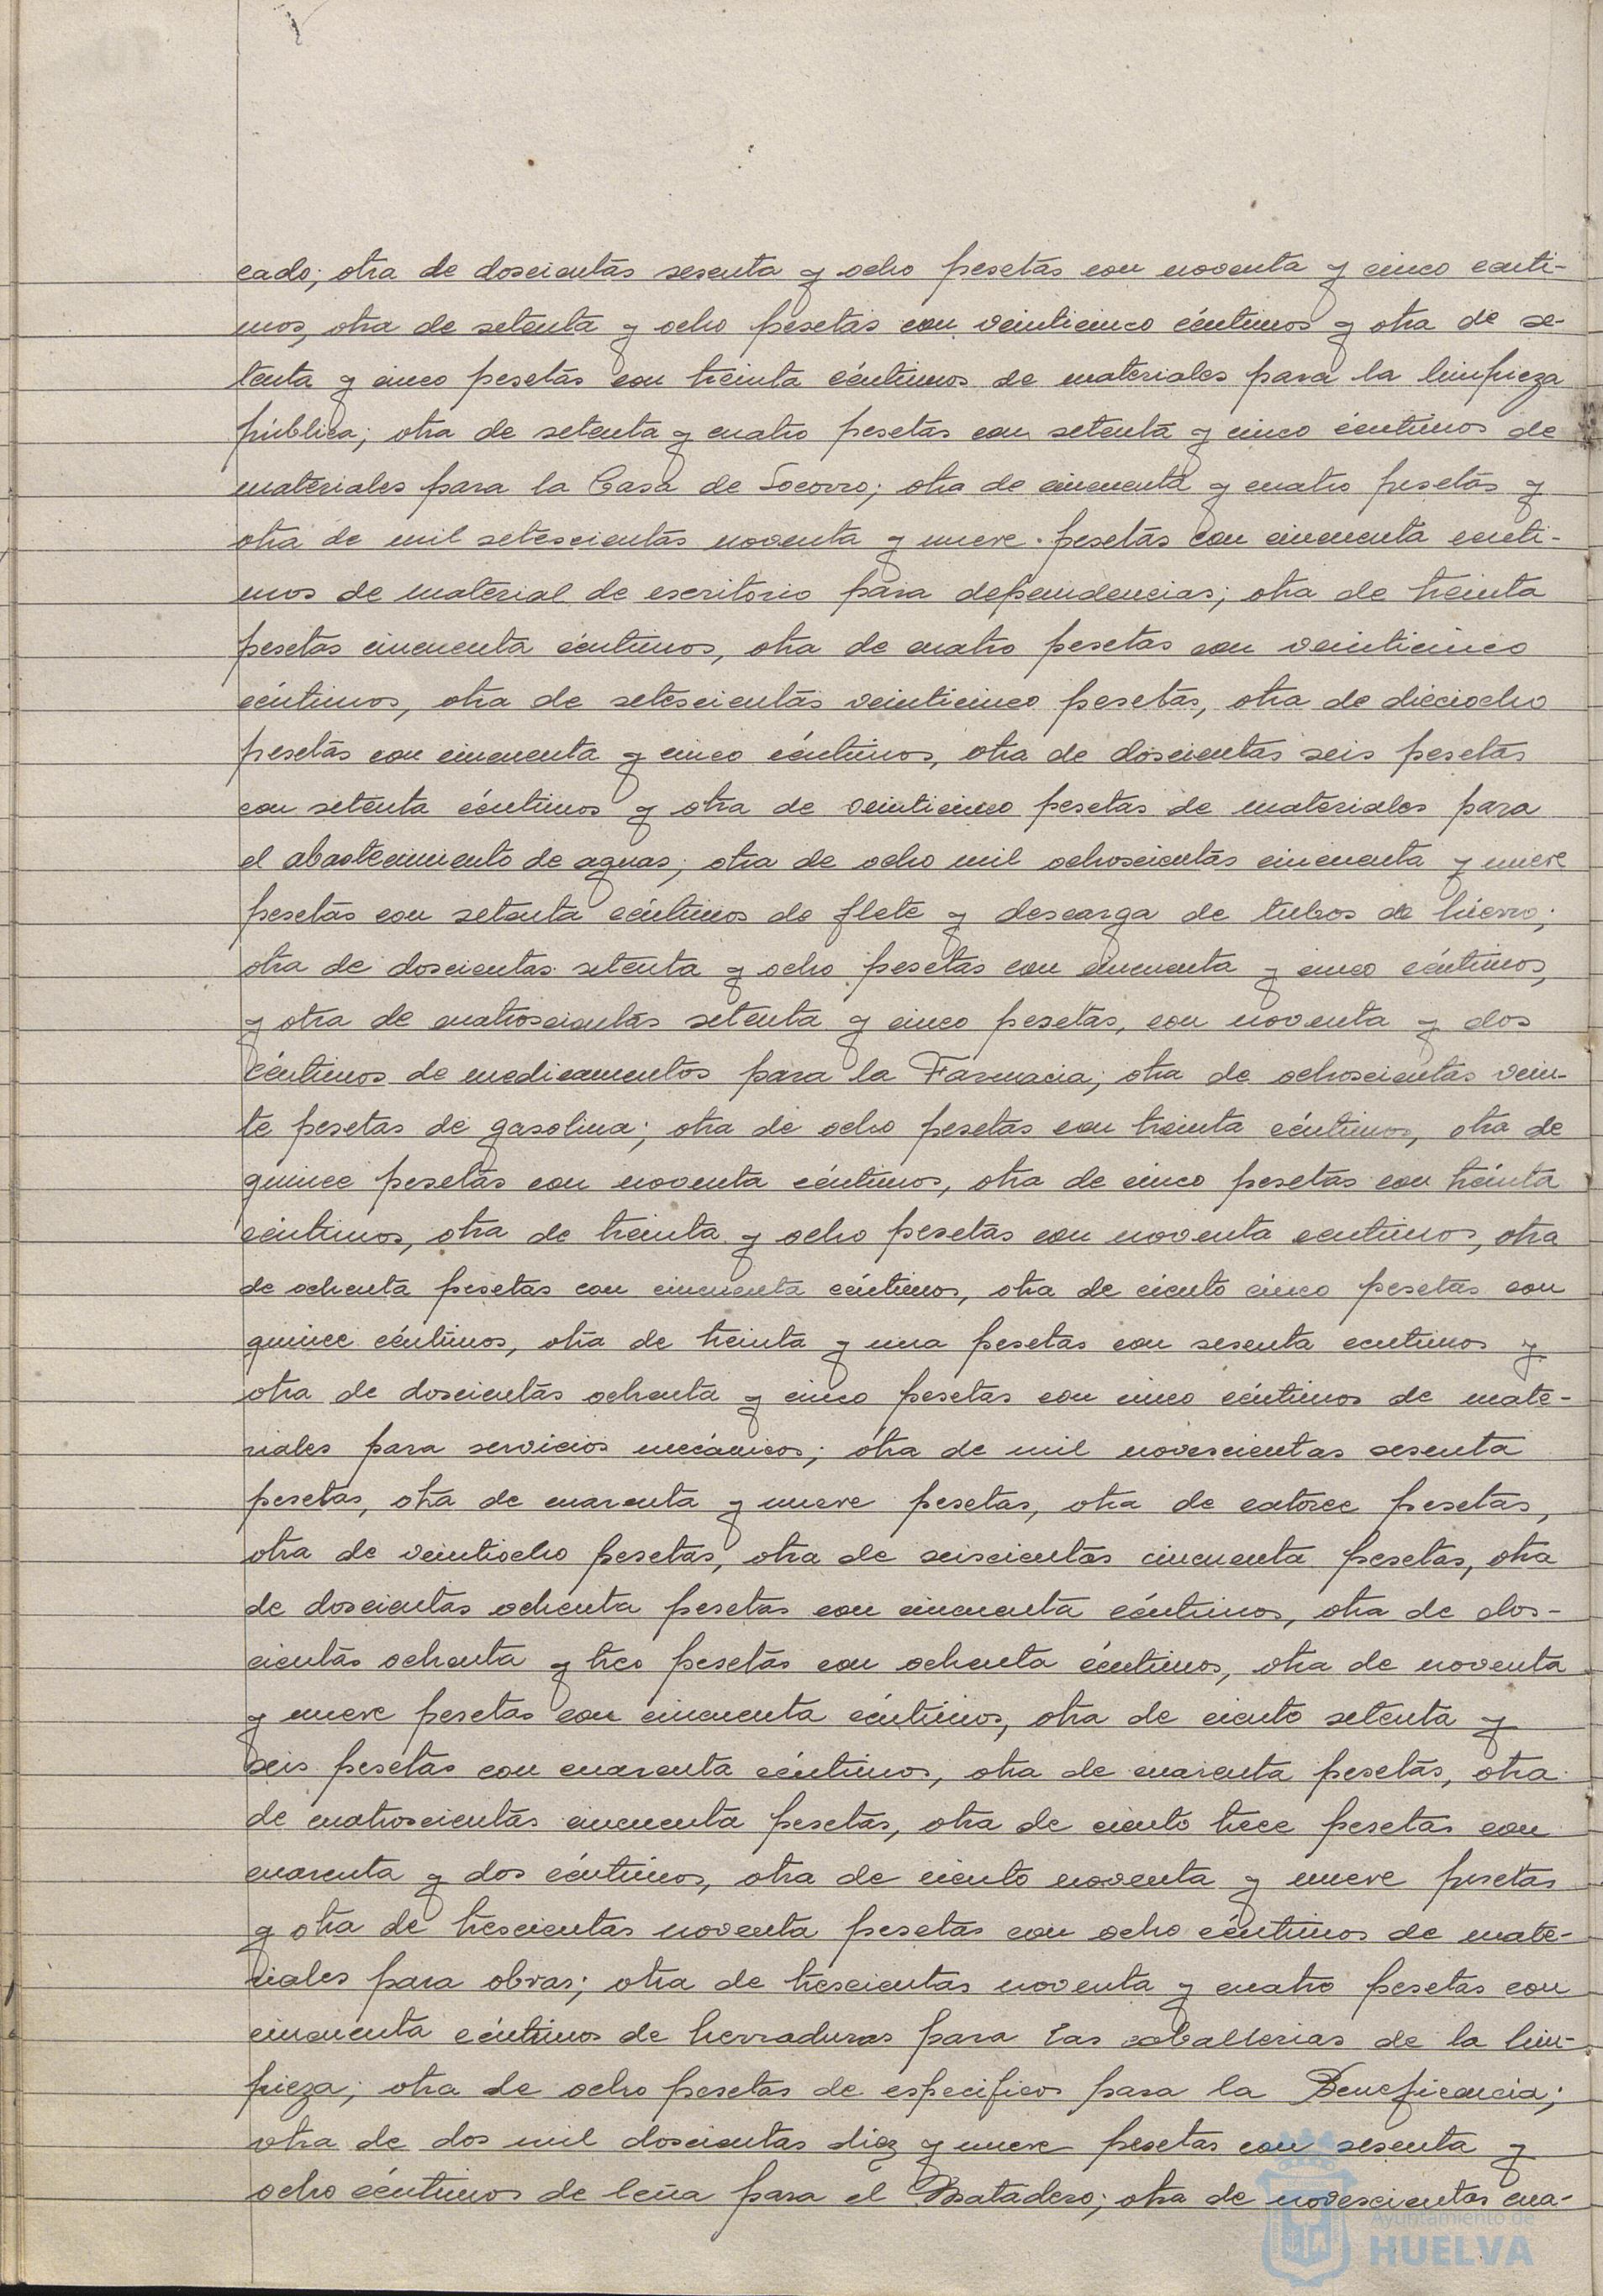 cado; otra de doscientas sesenta y ocho pesetas con noventa y cinco centi-
mos, otra de setenta y ocho pesetas con veinticinco céntimos y otra de se-
tenta y cinco pesetas con treinta céntimos de materiales para la limpieza
pública; otra de setenta y cuatro pesetas con setenta y cinco céntimos de
materiales para la Casa de Socorro; otra de cincuenta y cuatro pesetas y
otra de mil setescientas noventa y nueve pesetas con cincuenta centi-
mos de material de escritorio para dependencias; otra de treinta
pesetas cincuenta céntimos, otra de cuatro pesetas con veinticinco
céntimos, otra de setescientas veinticinco pesetas, otra de dieciocho
pesetas con cincuenta y cinco céntimos, otra de doscientas seis pesetas
con setenta céntimos y otra de veinticinco pesetas de materiales para
el abastecimiento de aguas; otra de ocho mil ochoscientas cincuenta y nueve
pesetas con setenta céntimos de flete y descarga de tubos de hierro;
otra de doscientas setenta y ocho pesetas con cincuenta y cinco céntimos,
y otra de cuatroscientas setenta y cinco pesetas, con noventa y dos
céntimos de medicamentos para la Farmacia; otra de ochoscientas vein-
te pesetas de gasolina; otra de ocho pesetas con treinta céntimos, otra de
quince pesetas con noventa céntimos, otra de cinco pesetas con treinta
céntimos, otra de treinta y ocho pesetas con noventa centimos, otra
de ochenta pesetas con cincuenta céntimos, otra de ciento cinco pesetas con
quince céntimos, otra de treinta y una pesetas con sesenta centimos y
otra de doscientas ochenta y cinco pesetas con cinco céntimos de mate-
riales para servicios mecánicos; otra de mil novescientas sesenta
pesetas, otra de cuarenta y nueve pesetas, otra de catorce pesetas,
otra de veintiocho pesetas, otra de seiscientas cincuenta pesetas, otra
de doscientas ochenta pesetas con cincuenta céntimos, otra de dos-
cientas ochenta y tres pesetas con ochenta céntimos, otra de noventa
y nueve pesetas con cincuenta céntimos, otra de ciento setenta y
seis pesetas con cuarenta céntimos, otra de cuarenta pesetas, otra
de cuatroscientas cincuenta pesetas, otra de ciento trece pesetas con
cuarenta y dos céntimos, otra de ciento noventa y nueve pesetas
y otra de trescientas noventa pesetas con ocho céntimos de mate-
riales para obras; otra de trescientas noventa y cuatro pesetas con
cincuenta céntimos de herraduras para las caballerias de la lim-
pieza; otra de ocho pesetas de especificos para la Beneficencia;
otra de dos mil doscientas diez y nueve pesetas con sesenta y
ocho céntimos de leña para el Matadero; otra de novescientas cua-
Ayuntamiento de
HUELVA